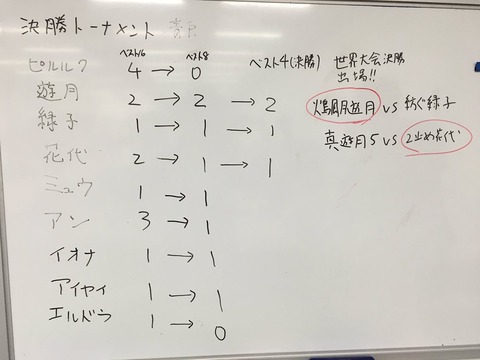 決勝トーナメント 表
ベスト16 ベスト8 ベスト4(決勝) 世界大会決勝
出場!!
ピルルク 4 → 0
遊月 2 → 2 → 2
緑子 1 → 1 → 1
花代 2 → 1 → 1
ミュウ 1 → 1
アン 3 → 1
イオナ 1 → 1
アイヤイ 1 → 1
エルドラ 1 → 0
遊月 vs 紡ぐ緑子
真遊月5 vs 2止め花代